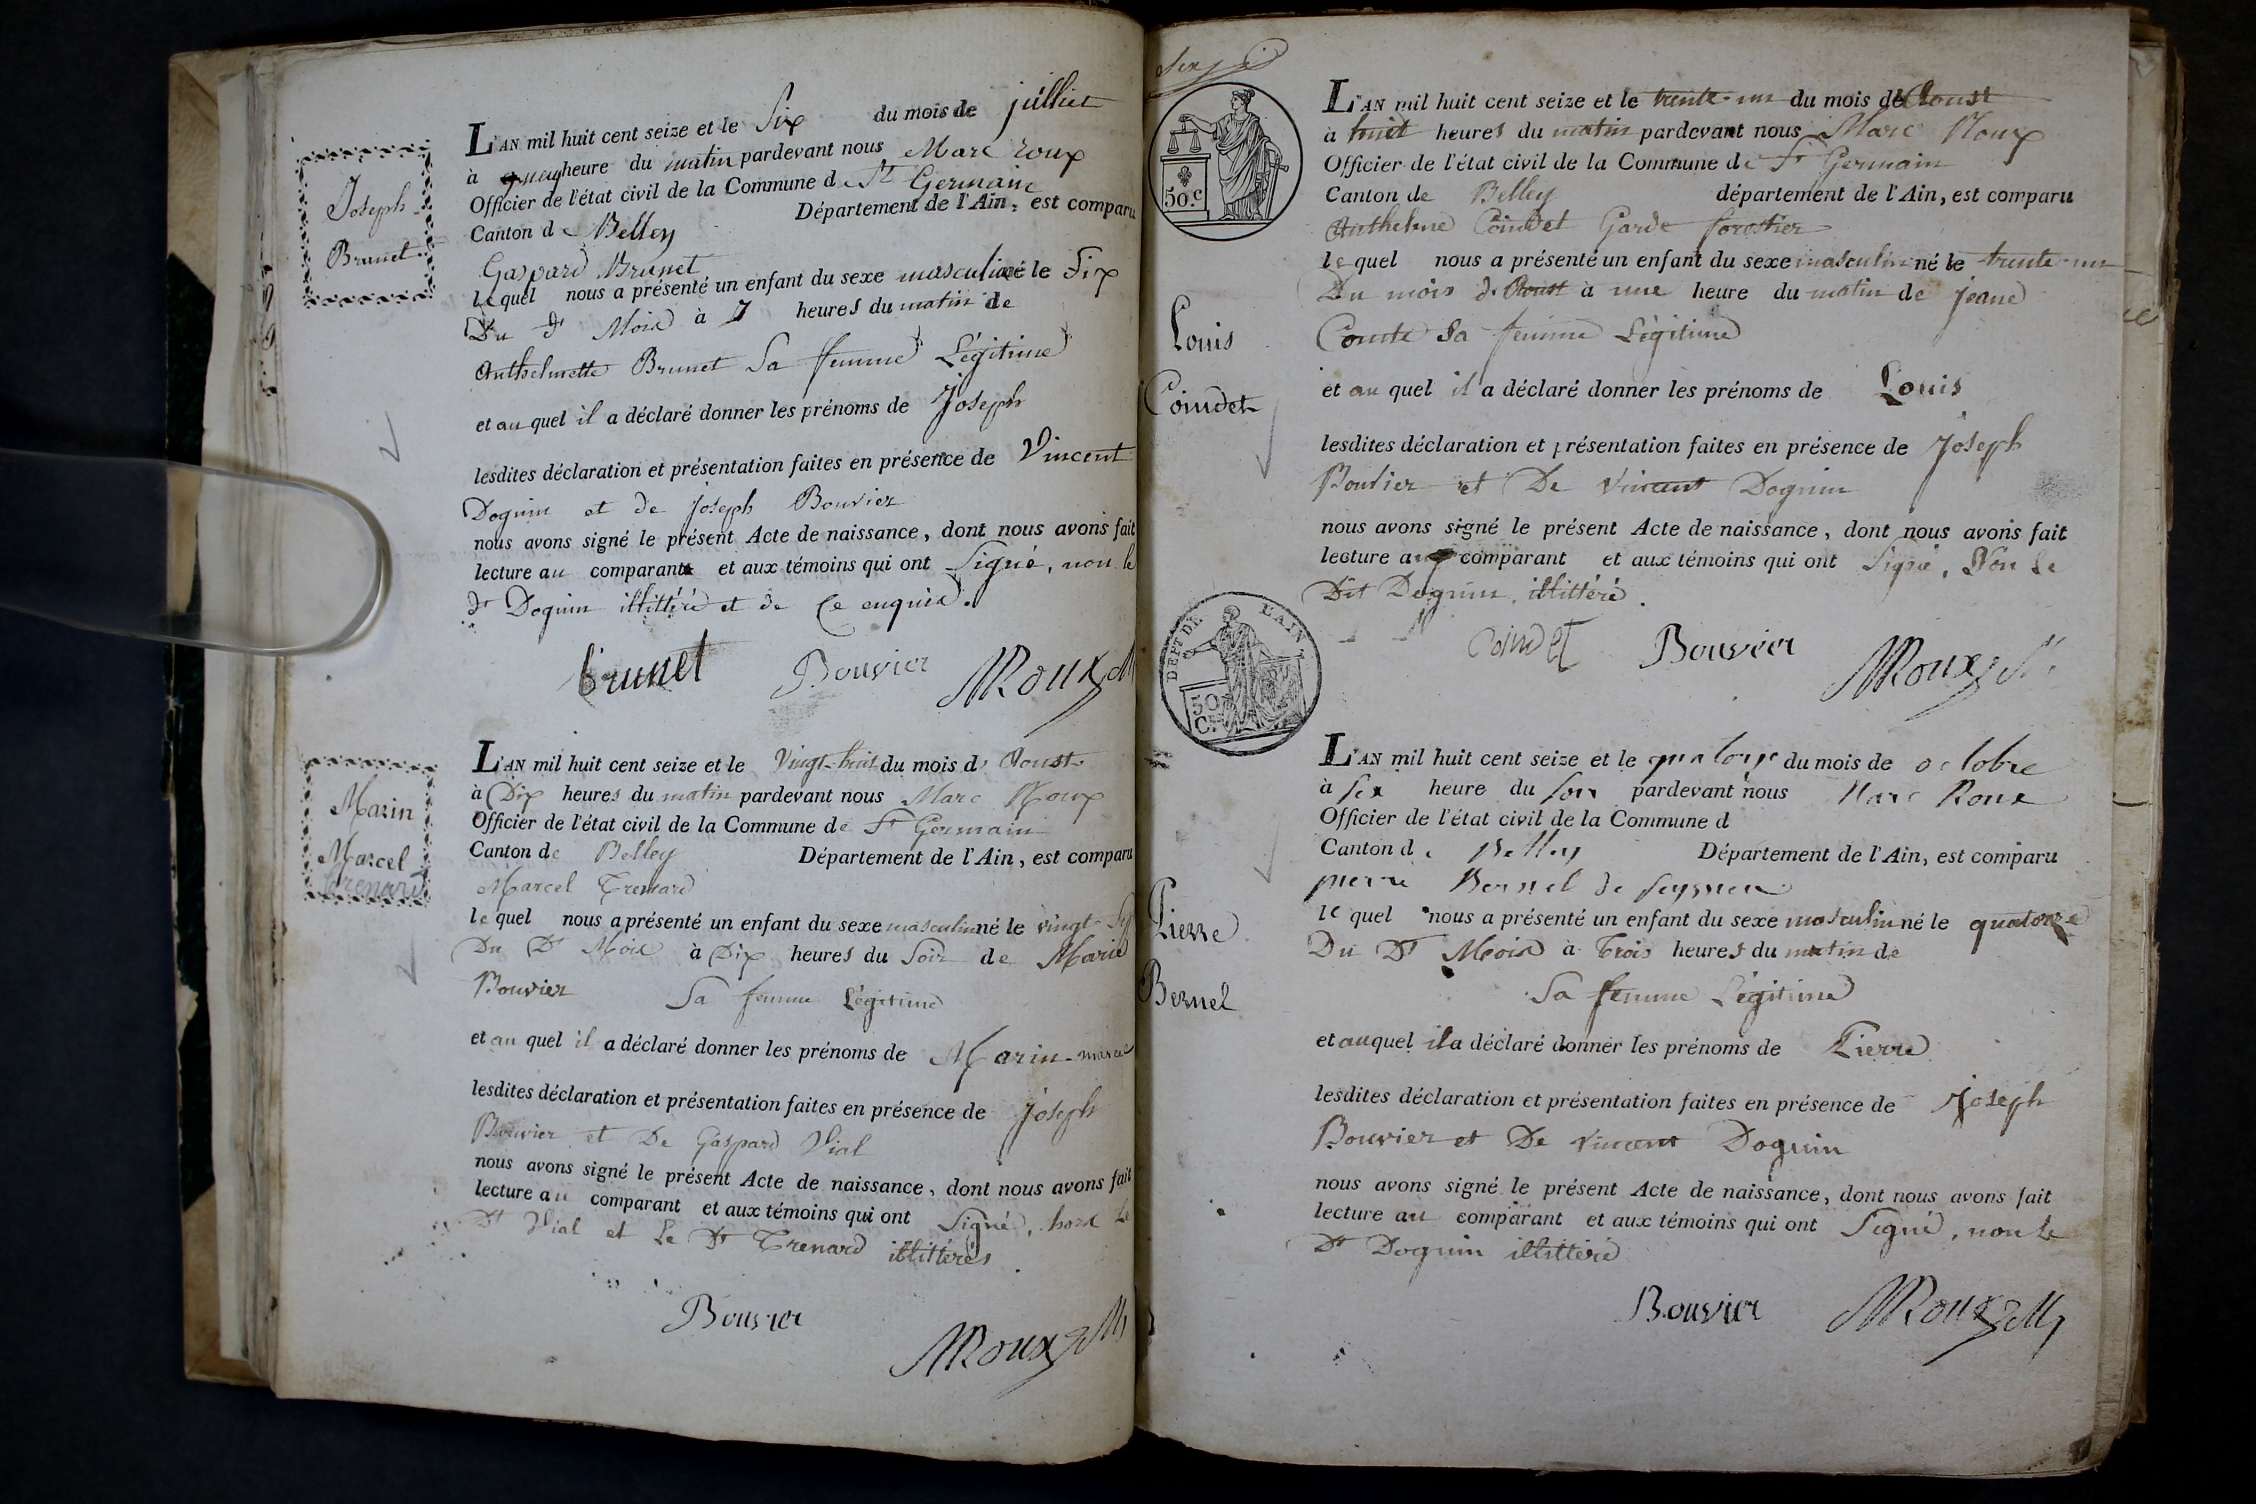 Joseph
Brunet
L'AN mil huit cent seize et le Six du mois de juilliet
à heure du matin pardevant nous Marc roux
Officier de l'état civil de la Commune de St Germain
Canton de Belley Département de l'Ain, est comparu
Gaspard Brunet
lequel nous a présenté un enfant du sexe masculin né le Six
Du dt Mois à 7 heures du matin de
Anthelmette Brunet Sa femme Légitime
et au quel il a déclaré donner les prénoms de Joseph
lesdites déclaration et présentation faites en présence de Vincent
Doguin et de joseph Bouvier
nous avons signé le présent Acte de naissance, dont nous avons fait
lecture au comparant et aux témoins qui ont Signé, non le
dt Doguin illittéré et de Ce enquis.
Brunet Bouvier MRoux
Marin
Marcel
trenard
L'AN mil huit cent seize et le Vingt-huit du mois d'Aoust
à Dix heures du matin pardevant nous Marc Roux
Officier de l'état civil de la Commune de St Germain
Canton de Belley Département de l'Ain, est comparu
Marcel Trenard
lequel nous a présenté un enfant du sexe masculin né le vingt-Sep
Du Dt Mois à Dix heures du Soir de Marie
Bouvier Sa femme Légitime
et au quel il a déclaré donner les prénoms de Marin-marcel
lesdites déclaration et présentation faites en présence de Joseph
Bouvier et De Gaspard Vial
nous avons signé le présent Acte de naissance, dont nous avons fait
lecture au comparant et aux témoins qui ont Signé, hors Le
Dt Vial et Le Dt Trenard illittérés
Bouvier
MRoux
50.c
L'AN mil huit cent seize et le trente-un du mois de Aoust
à huit heures du matin pardevant nous Marc Roux
Officier de l'état civil de la Commune de St Germain
Canton de Belley département de l'Ain, est comparu
Anthelme Coindet Garde forestier
lequel nous a présenté un enfant du sexe masculin né le trente-un
Du mois d'Aoust à une heure du matin de Jeane
Comte Sa femme Légitime
Louis
Coindet
et au quel il a déclaré donner les prénoms de Louis
lesdites déclaration et présentation faites en présence de Joseph
Bouvier et De Vincent Doguin
nous avons signé le présent Acte de naissance, dont nous avons fait
lecture au comparant et aux témoins qui ont Signé, Non Le
Dit Doguin, illittéré.
DEPT DE L'AIN
50 Ces
Coindet Bouvier MRoux
L'AN mil huit cent seize et le quatorze du mois de octobre
à six heure du soir pardevant nous Marc Roux
Officier de l'état civil de la Commune d
Canton de Belley Département de l'Ain, est comparu
pierre Bernel de
lequel nous a présenté un enfant du sexe masculin né le quatorze
Du Dt Mois à Trois heures du matin de
Sa femme Légitime
Pierre
Bernel
et auquel il a déclaré donner les prénoms de Pierre
lesdites déclaration et présentation faites en présence de Joseph
Bouvier et De Vincent Doguin
nous avons signé le présent Acte de naissance, dont nous avons fait
lecture au comparant et aux témoins qui ont Signé, non Le
Dt Doguin illittéré
Bouvier MRoux